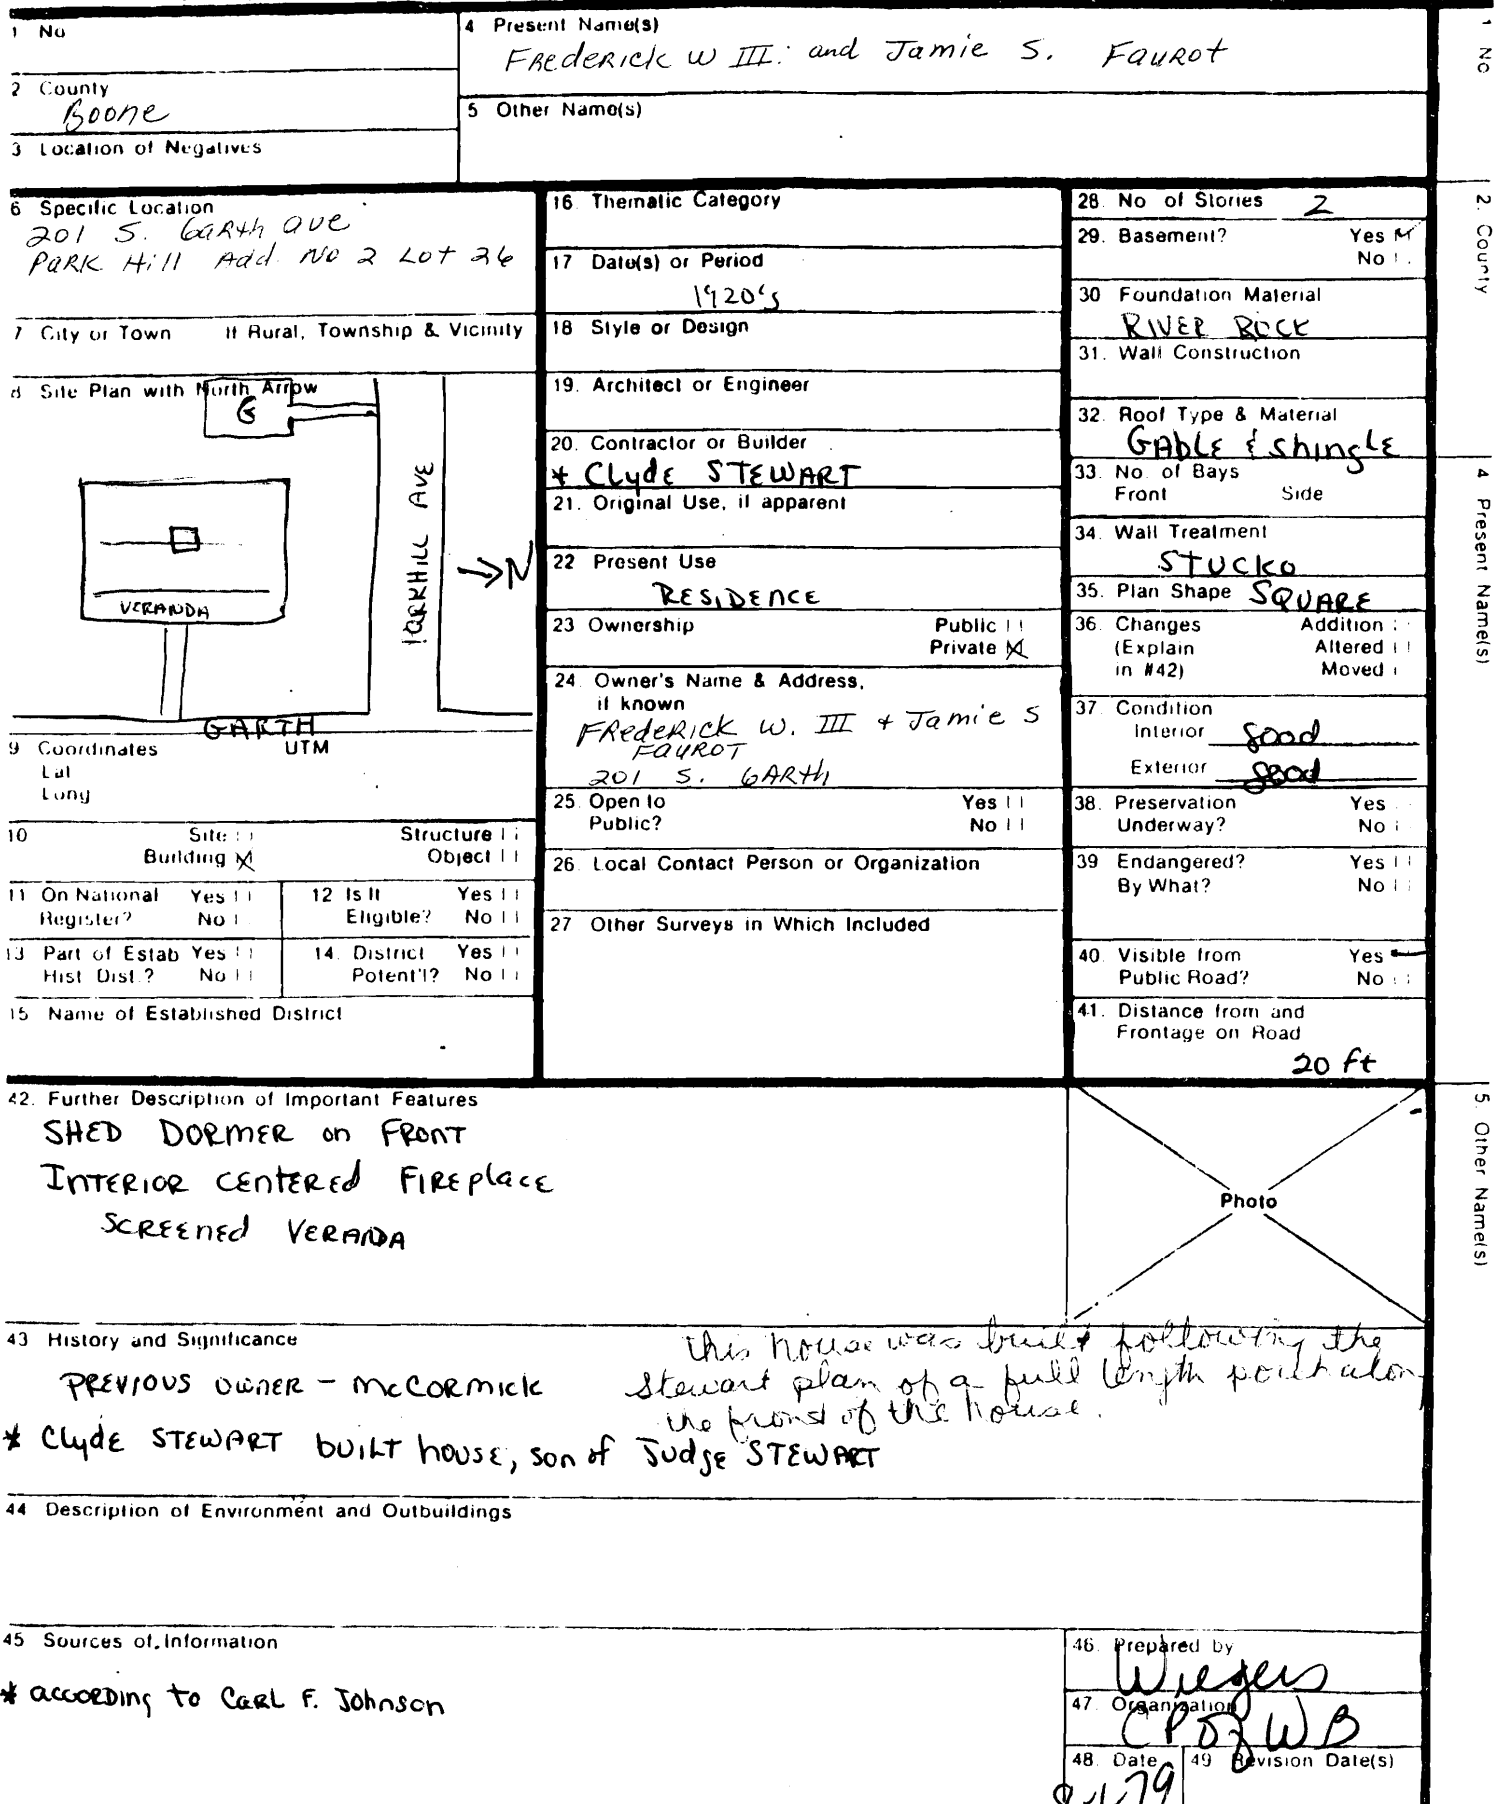 1 No
4 Present Name(s)
Frederick W III. and Jamie S. Faurot
2 County
Boone
5 Other Name(s)
3 Location of Negatives
6 Specific Location
201 S. Garth ave
Park Hill Add. No 2 Lot 26
7 City or Town If Rural, Township & Vicinity
8 Site Plan with North Arrow
G
PARKHILL AVE
→N
VERANDA
GARTH
9 Coordinates UTM
Lat
Long
10 Site
Structure
Building X
Object
11 On National Register? Yes No
12 Is It Eligible? Yes No
13 Part of Estab Hist Dist.? Yes No
14. District Potent'l? Yes No
15 Name of Established District
16. Thematic Category
17 Date(s) or Period
1920's
18 Style or Design
19. Architect or Engineer
20. Contractor or Builder
* Clyde STEWART
21. Original Use, if apparent
22 Present Use
RESIDENCE
23 Ownership Public
Private X
24. Owner's Name & Address,
if known
Frederick W. III + Jamie S
Faurot
201 S. GARTH
25. Open to Yes
Public? No
26. Local Contact Person or Organization
27 Other Surveys in Which Included
28. No of Stories 2
29. Basement? Yes
No
30 Foundation Material
RIVER ROCK
31. Wall Construction
32. Roof Type & Material
GABLE & shingle
33. No. of Bays
Front Side
34. Wall Treatment
STUCKO
35. Plan Shape SQUARE
36. Changes Addition
(Explain Altered
in #42) Moved
37. Condition
Interior good
Exterior good
38. Preservation Yes
Underway? No
39 Endangered? Yes
By What? No
40. Visible from Yes
Public Road? No
41. Distance from and
Frontage on Road
20 ft
42. Further Description of Important Features
SHED DORMER on FRONT
INTERIOR CENTERED FIREPLACE
SCREENED VERANDA
Photo
43 History and Significance
PREVIOUS OWNER - McCORMICK
This house was built following the
Stewart plan of a full length porch alon
the front of the house.
* Clyde STEWART built house, son of Judge STEWART
44 Description of Environment and Outbuildings
45 Sources of Information
* according to Carl F. Johnson
46. Prepared by
Wiegers
47. Organization
48. Date
49 Revision Date(s)
1 No
2. County
4 Present Name(s)
5. Other Name(s)